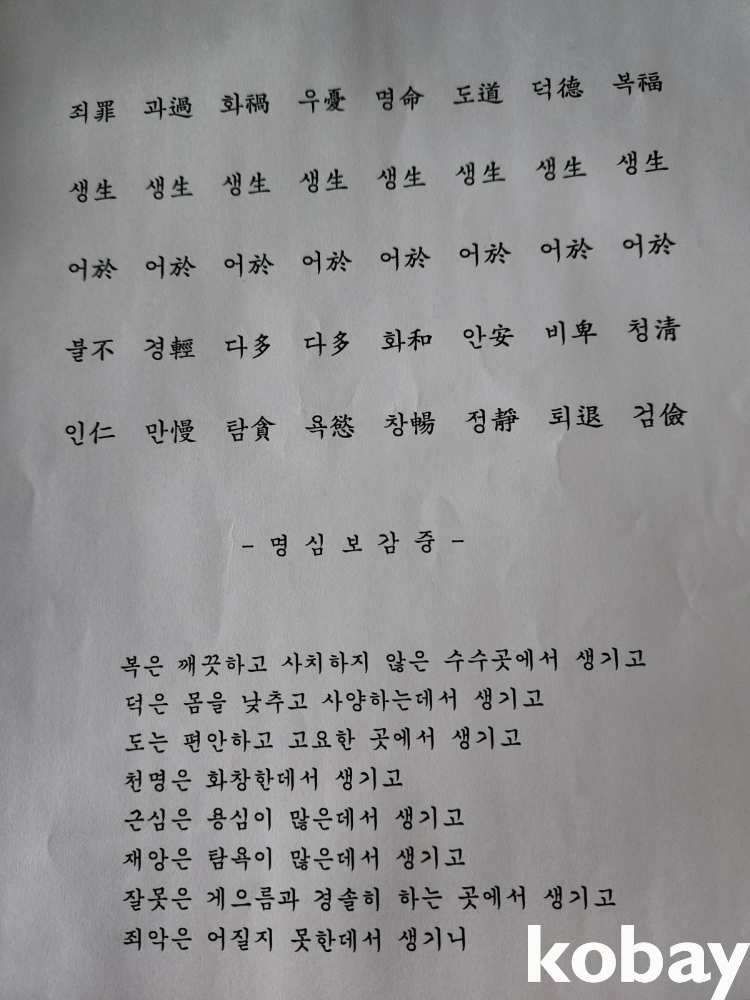 복福 생生 어於 청清 검儉
덕德 생生 어於 비卑 퇴退
도道 생生 어於 안安 정靜
명命 생生 어於 화和 창暢
우憂 생生 어於 다多 욕慾
화禍 생生 어於 다多 탐貪
과過 생生 어於 경輕 만慢
죄罪 생生 어於 불不 인仁
- 명 심 보 감 중 -
복은 깨끗하고 사치하지 않은 수수곳에서 생기고
덕은 몸을 낮추고 사양하는데서 생기고
도는 편안하고 고요한 곳에서 생기고
천명은 화창한데서 생기고
근심은 용심이 많은데서 생기고
재앙은 탐욕이 많은데서 생기고
잘못은 게으름과 경솔히 하는 곳에서 생기고
죄악은 어질지 못한데서 생기니
kobay